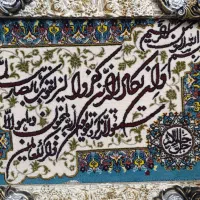 بسم الله الرحمن الرحیم
وان یکاد الذین کفروا لیزلقونک بابصارهم
لما سمعوا الذکر و یقولون انه لمجنون و ما هو
الا ذکر للعالمین